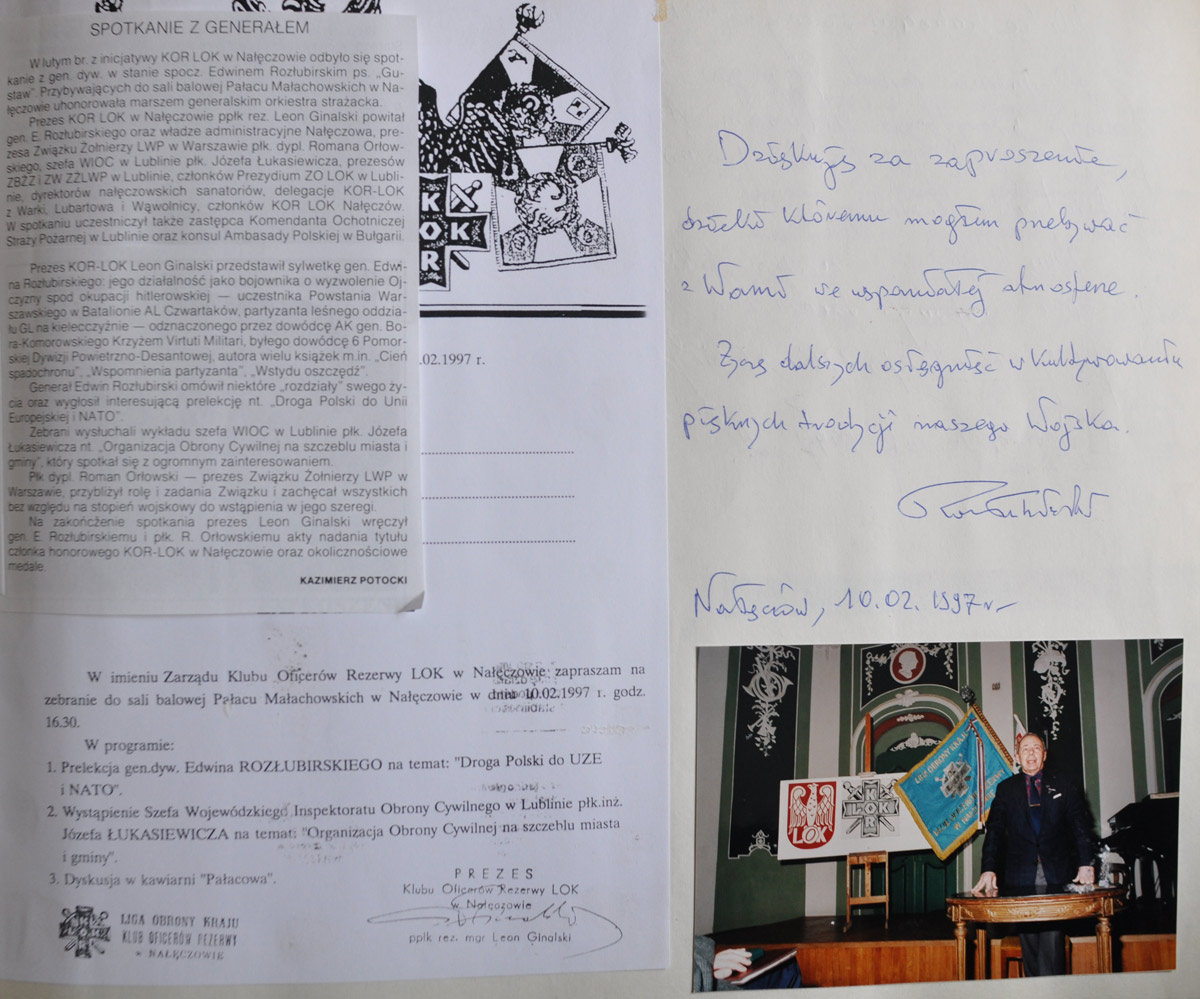 SPOTKANIE Z GENERAŁEM
W lutym br. z inicjatywy KOR LOK w Nałęczowie odbyło się spot-
kanie z gen. dyw. w stanie spocz. Edwinem Rozłubirskim ps. „Gu-
staw”. Przybywających do sali balowej Pałacu Małachowskich w Na-
łęczowie uhonorowała marszem generalskim orkiestra strażacka.
Prezes KOR LOK w Nałęczowie ppłk rez. Leon Ginalski powitał
gen. E. Rozłubirskiego oraz władze administracyjne Nałęczowa, pre-
zesa Związku Żołnierzy LWP w Warszawie płk. dypl. Romana Orłow-
skiego, szefa WIOC w Lublinie płk. Józefa Łukasiewicza, prezesów
ZBŻZ i ZW ZŻLWP w Lublinie, członków Prezydium ZO LOK w Lubli-
nie, dyrektorów nałęczowskich sanatoriów, delegacje KOR-LOK
z Warki, Lubartowa i Wąwolnicy, członków KOR LOK Nałęczów.
W spotkaniu uczestniczył także zastępca Komendanta Ochotniczej
Straży Pożarnej w Lublinie oraz konsul Ambasady Polskiej w Bułgarii.
Prezes KOR-LOK Leon Ginalski przedstawił sylwetkę gen. Edwi-
na Rozłubirskiego: jego działalność jako bojownika o wyzwolenie Oj-
czyzny spod okupacji hitlerowskiej — uczestnika Powstania War-
szawskiego w Batalionie AL Czwartaków, partyzanta leśnego oddzia-
łu GL na kielecczyźnie — odznaczonego przez dowódcę AK gen. Bo-
ra-Komorowskiego Krzyżem Virtuti Militari, byłego dowódcę 6 Pomor-
skiej Dywizji Powietrzno-Desantowej, autora wielu książek m.in. „Cień
spadochronu”, „Wspomnienia partyzanta”, „Wstydu oszczędź”.
Generał Edwin Rozłubirski omówił niektóre „rozdziały” swego ży-
cia oraz wygłosił interesującą prelekcję nt. „Droga Polski do Unii
Europejskiej i NATO”.
Zebrani wysłuchali wykładu szefa WIOC w Lublinie płk. Józefa
Łukasiewicza nt. „Organizacja Obrony Cywilnej na szczeblu miasta i
gminy”, który spotkał się z ogromnym zainteresowaniem.
Płk dypl. Roman Orłowski — prezes Związku Żołnierzy LWP w
Warszawie, przybliżył rolę i zadania Związku i zachęcał wszystkich
bez względu na stopień wojskowy do wstąpienia w jego szeregi.
Na zakończenie spotkania prezes Leon Ginalski wręczył
gen. E. Rozłubirskiemu i płk. R. Orłowskiemu akty nadania tytułu
członka honorowego KOR-LOK w Nałęczowie oraz okolicznościowe
medale.
KAZIMIERZ POTOCKI
K
LOK
R
.02.1997 r.
W imieniu Zarządu Klubu Oficerów Rezerwy LOK w Nałęczowie zapraszam na
zebranie do sali balowej Pałacu Małachowskich w Nałęczowie w dniu 10.02.1997 r. godz.
16.30.
W programie:
1. Prelekcja gen.dyw. Edwina ROZŁUBIRSKIEGO na temat: "Droga Polski do UZE
i NATO".
2. Wystąpienie Szefa Wojewódzkiego Inspektoratu Obrony Cywilnej w Lublinie płk.inż.
Józefa ŁUKASIEWICZA na temat: "Organizacja Obrony Cywilnej na szczeblu miasta
i gminy".
3. Dyskusja w kawiarni "Pałacowa".
PREZES
Klubu Oficerów Rezerwy LOK
w Nałęczowie
ppłk rez. mgr Leon Ginalski
LIGA OBRONY KRAJU
KLUB OFICERÓW REZERWY
w NAŁĘCZOWIE
Dziękuję za zaproszenie,
dzięki któremu mogłem przebywać
z Wami we wspaniałej atmosferze.
Życzę dalszych osiągnięć w kultywowaniu
pięknych tradycji naszego Wojska.
Nałęczów, 10.02.1997 r.
LOK
K
LOK
R
LIGA OBRONY KRAJU